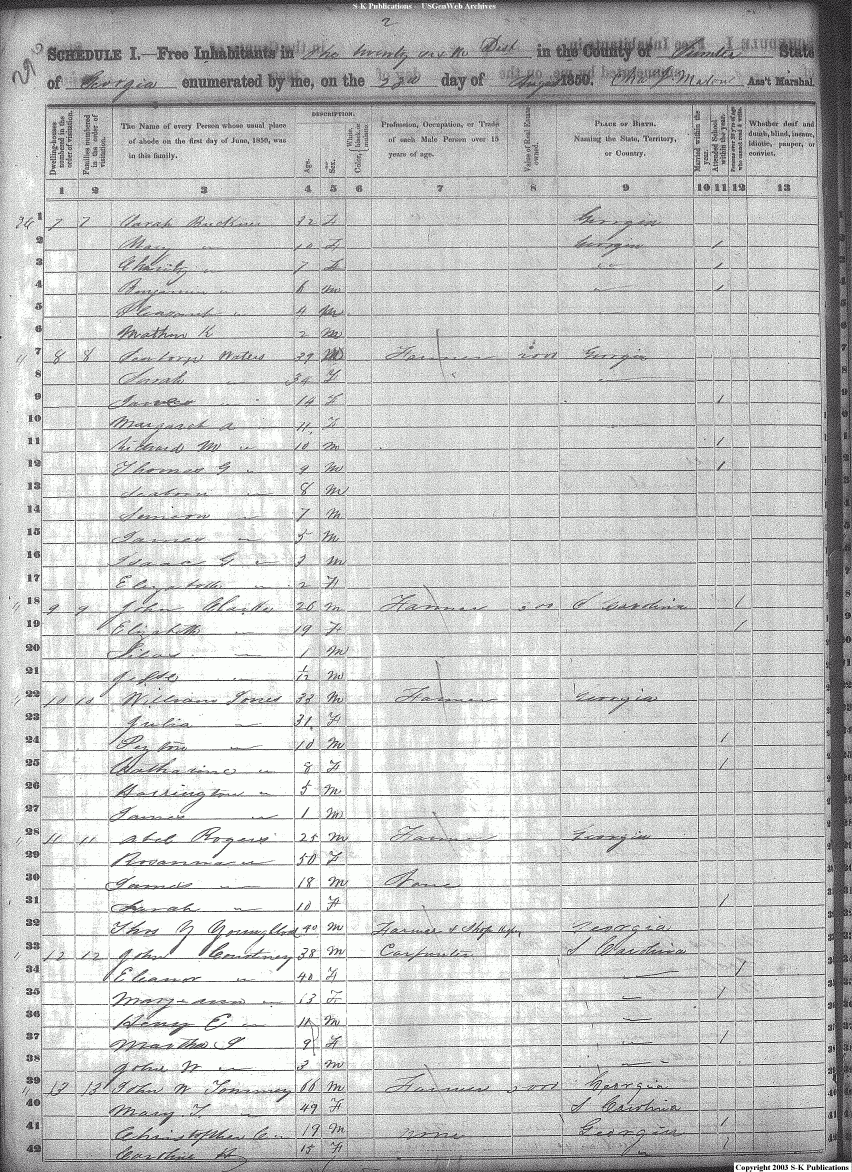 S-K Publications - USGenWeb Archives
2
SCHEDULE I.—Free Inhabitants in The twenty sixth Dist in the County of Sumter State
of Georgia enumerated by me, on the 23rd day of August 1850. Chas J Malone Ass't Marshal.
Dwelling-houses numbered in the order of visitation.
Families numbered in the order of visitation.
The Name of every Person whose usual place of abode on the first day of June, 1850, was in this family.
DESCRIPTION.
Age.
Sex.
Color, White, black, or mulatto.
Profession, Occupation, or Trade of each Male Person over 15 years of age.
Value of Real Estate owned.
PLACE OF BIRTH. Naming the State, Territory, or Country.
Married within the year.
Attended School within the year.
Persons over 20 y'rs of age who cannot read & write.
Whether deaf and dumb, blind, insane, idiotic, pauper, or convict.
1 2 3 4 5 6 7 8 9 10 11 12 13
1 7 7 Sarah Buckner 32 F Georgia
2 Mary " 10 F Georgia 1
3 Charity " 7 F " 1
4 Benjamin " 6 m " 1
5 Pleasant " 4 m
6 Mathew K 2 m
7 8 8 Seaborn Waters 39 M Farmer 2000 Georgia
8 Sarah " 34 F "
9 James " 14 F 1
10 Margaret A " 11 F
11 Richard M " 10 m 1
12 Thomas G " 9 M 1
13 Seaborn " 8 M
14 Simeon " 7 M
15 James " 5 M
16 Isaac G " 3 m
17 Elizabeth " 2 F
18 9 9 John Clarke 26 m Farmer 300 S Carolina 1
19 Elizabeth " 19 F 1
20 Silas " 1 M
21 1/12 M
22 10 10 William Jones 33 M Farmer Georgia
23 Julia " 31 F
24 Peyton " 10 M 1
25 Catharine " 8 F 1
26 Harrington " 5 M
27 James " 1 M
28 11 11 Abel Rogers 25 M Farmer Georgia
29 Rosanna " 50 F
30 James " 18 M None
31 Sarah " 10 F 1
32 Thos Y Youngblood M Farmer & Shop Georgia
33 12 12 John Courtney 38 M Carpenter S Carolina
34 Eleanor " 40 F " 1
35 Mary ann " 13 F " 1
36 Henry E " M "
37 Martha " 9 F " 1
38 John W " 3 m "
39 13 13 John W Tommey 66 M Farmer Georgia
40 Mary T. " 49 F S Carolina
41 Christopher C. " 19 M none Georgia 1
42 Caroline F " 1
Copyright 2003 S-K Publications